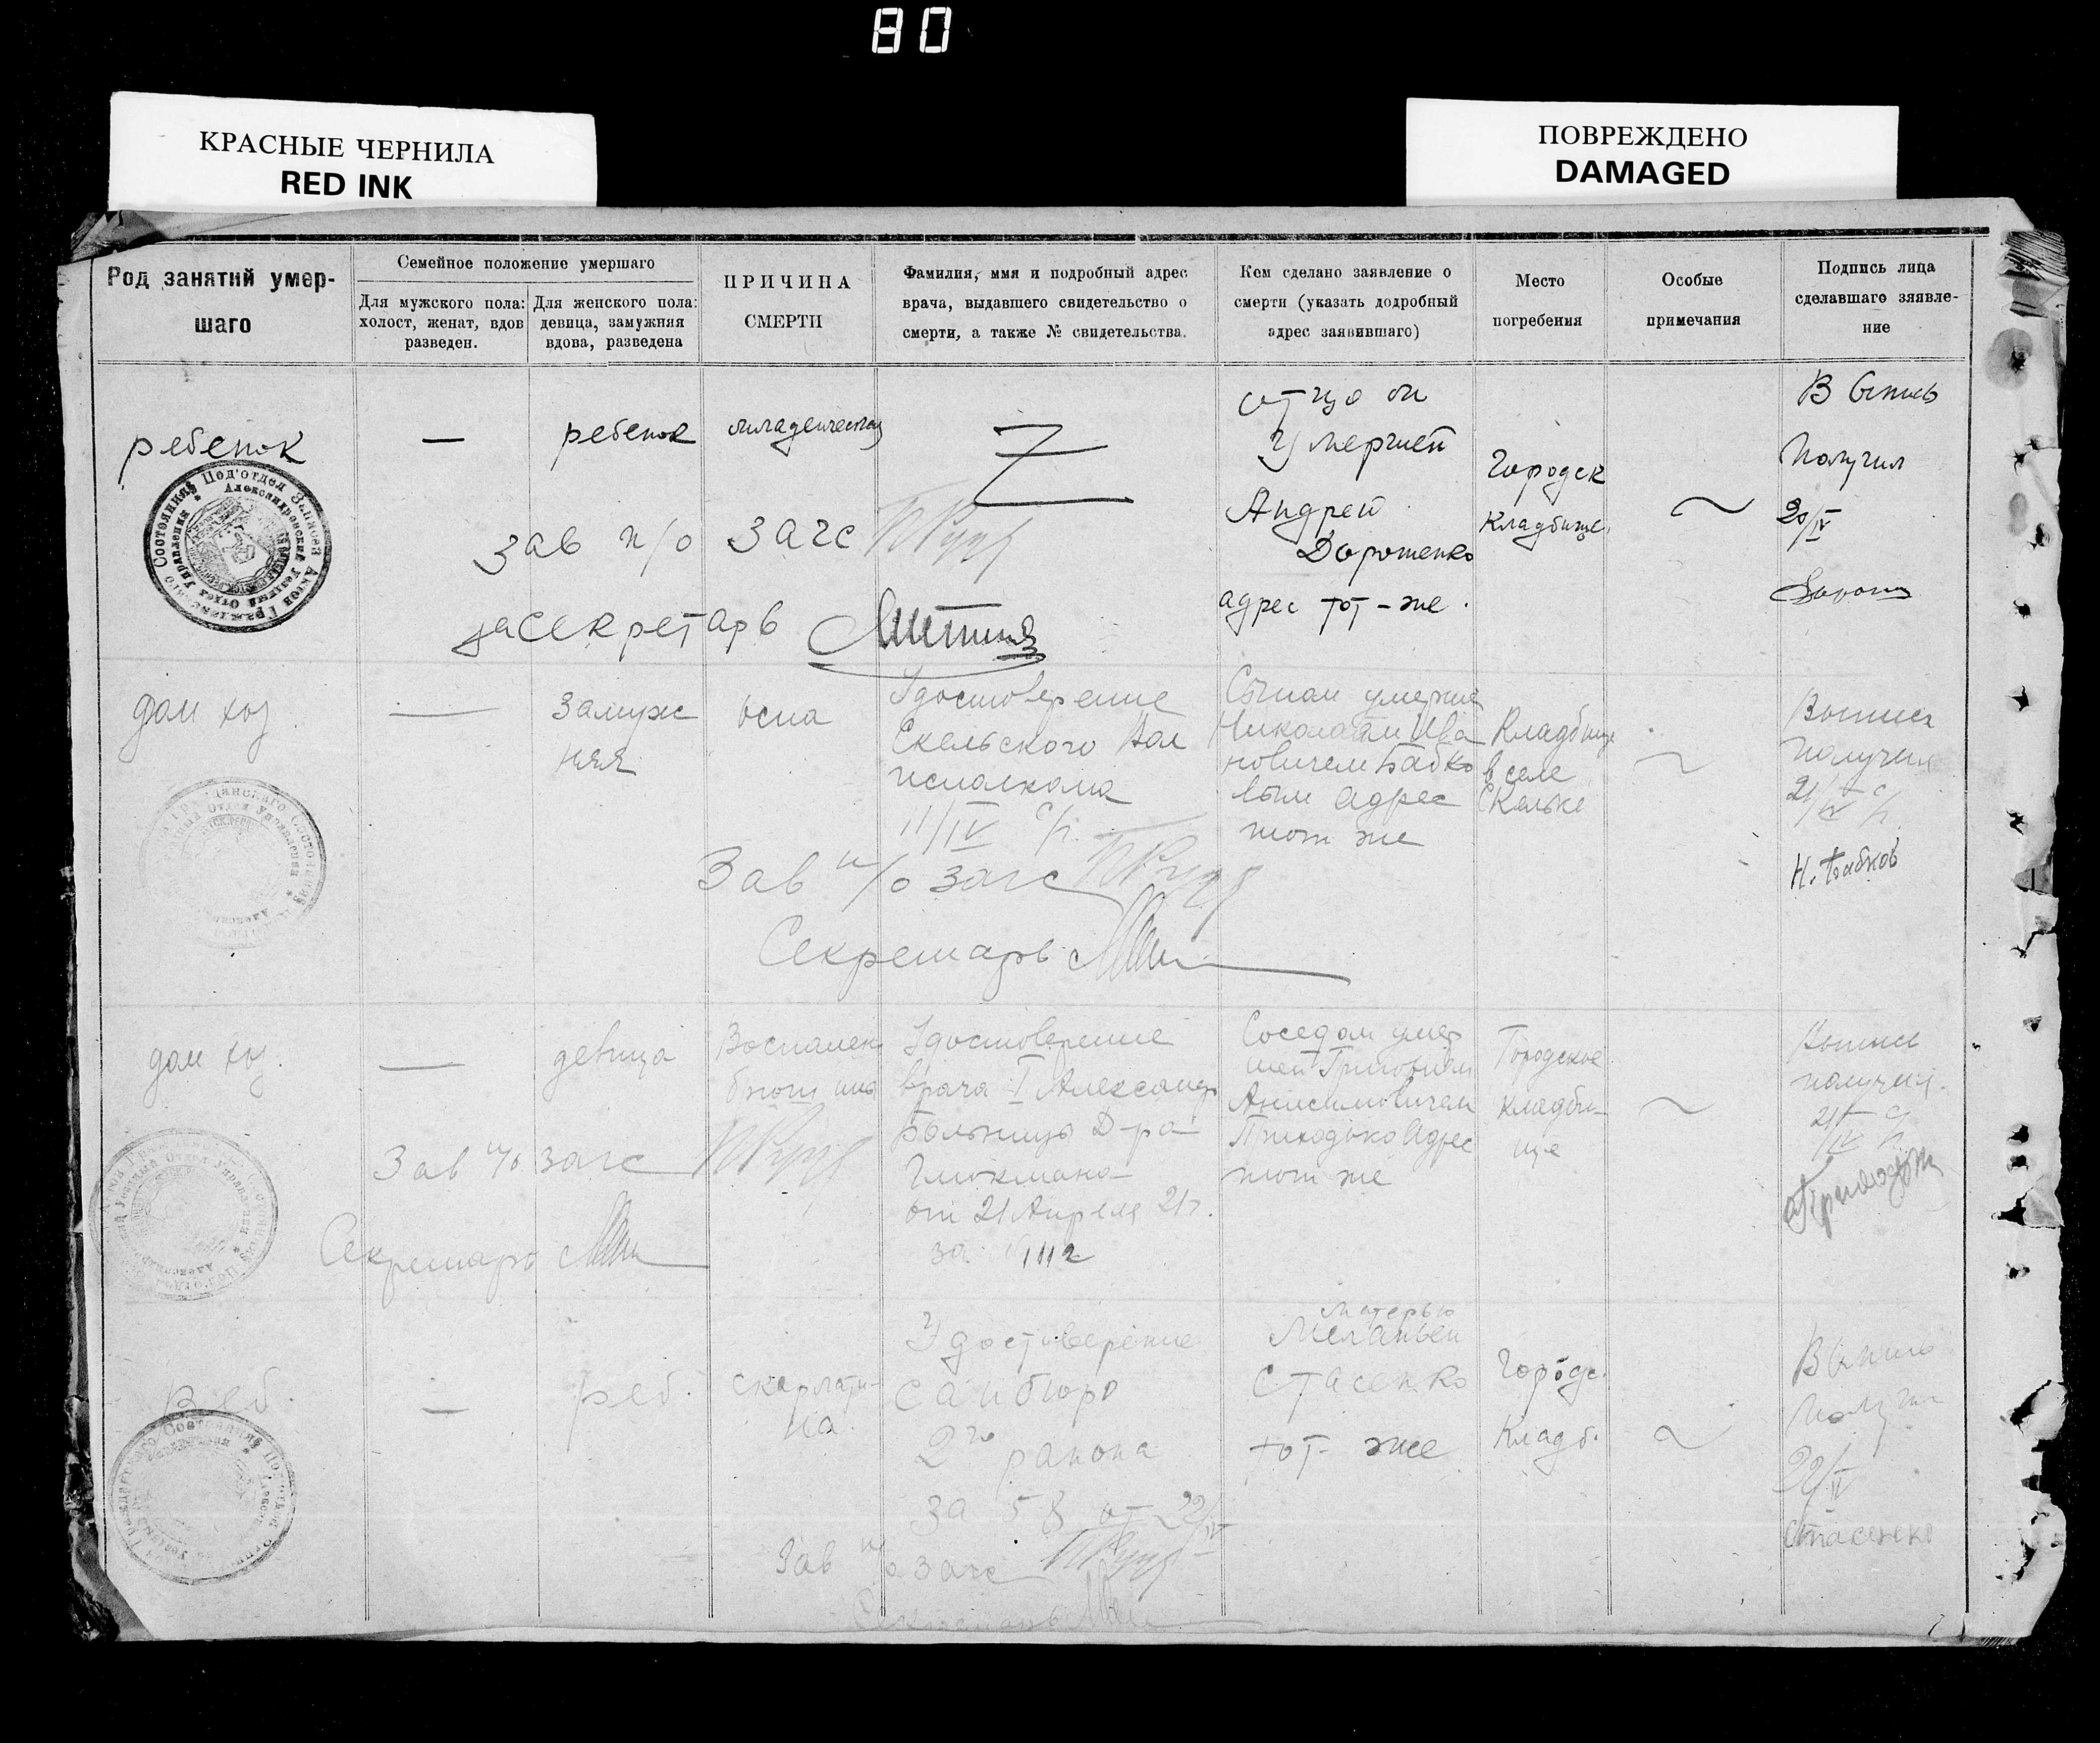 80
КРАСНЫЕ ЧЕРНИЛА
RED INK
ПОВРЕЖДЕНО
DAMAGED
Род занятий умер-
шаго
Семейное положение умершаго
Для мужского пола:
холост, женат, вдов
разведен.
Для женского пола:
девица, замужняя
вдова, разведена
ПРИЧИНА
СМЕРТИ
Фамилия, имя и подробный адрес
врача, выдавшего свидетельство о
смерти, а также № свидетельства.
Кем сделано заявление о
смерти (указать додробный
адрес заявившаго)
Место
погребения
Особые
примечания
Подпись лица
сделавшаго зяявле-
ние
ребенок
—
ребенок
младенческая
Z
отцом
умершей
Андрей
Дорошенко
адрес тот-же.
Городск
кладбище.
~
Выпись
получил
20/IV
Зав п/о загс
за секретарь
дом хоз.
—
Замуж
няя
оспа
Удостоверение
Скельского Вол
исполкома
11/IV с/г.
Сыном умершей
Николаем Ива
новичем Бабко
вым адрес
тот же
Кладбище
в селе
Скельке
~
Выпись
получил
21/IV с/г.
Н. Бабков
Зав п/о загс
Секретарь
дом хоз.
—
девица
Воспален
брюшины
Удостоверение
врача I Александр
Больницы Д-ра
Глюкмана
от 21 Апреля 21г.
за 1112
Соседом умер
шей
Анисимовичем
Приходько адрес
тот же
Городское
кладби-
ще
~
Выпись
получил.
21/IV с/г
Приходько
Зав п/о загс
Секретарь
Реб.
—
реб.
скарлати-
на
Удостоверение
санбюро
2го района
за 58 от 22/IV
матерью
Меланьей
Стасенко
тот-же
Городс.
Кладб.
~
Выпись
получил
22/IV
Стасенко
Зав п/о загс
Секретарь